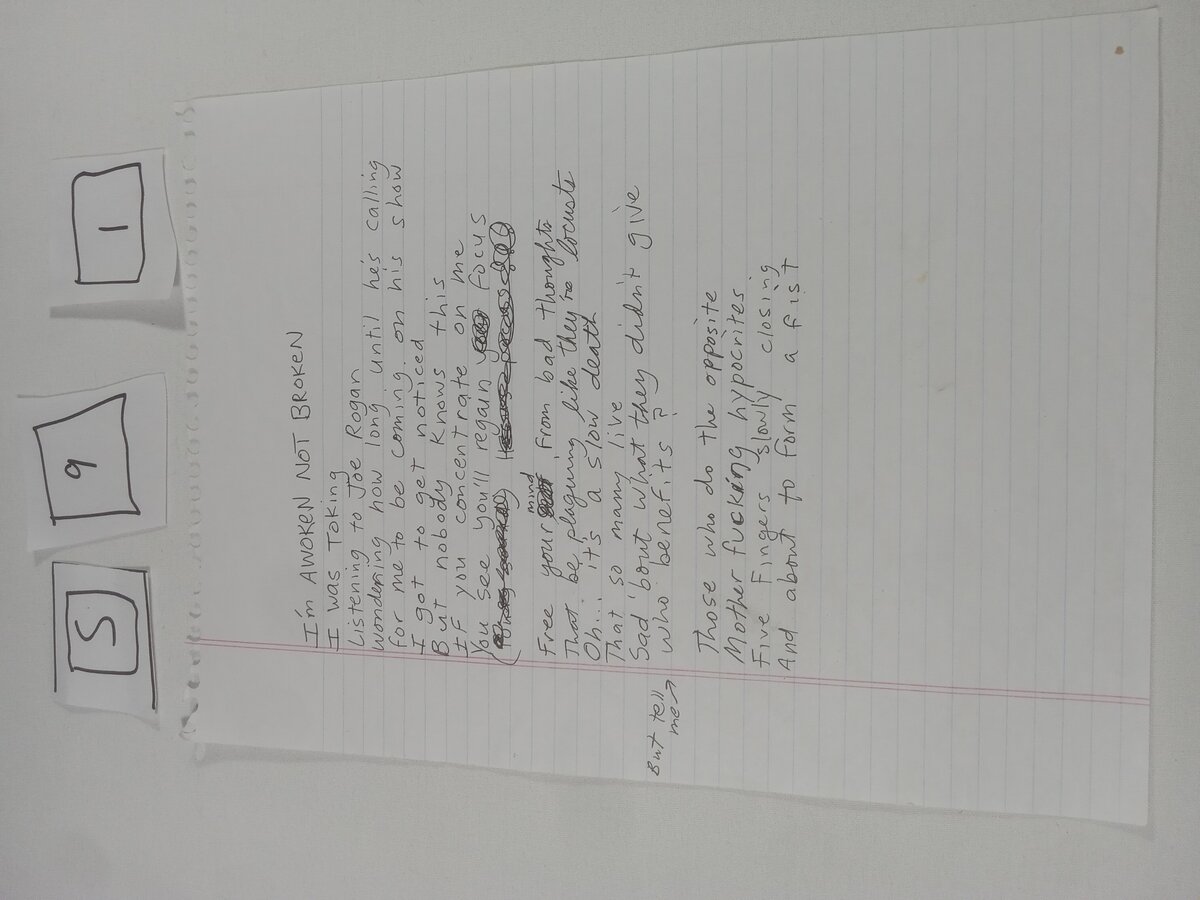 5
9
1
I'm AWOKEN NOT BROKEN
I was Toking
Listening to Joe Rogan
wondering how long until he's calling
for me to be coming on his show
I got to get noticed
But nobody knows this
If you concentrate on me
You see you'll regain focus
Free your mind from bad thoughts
That be plaguing like they're locusts
Oh... it's a slow death
That so many live
Sad 'bout what they didn't give
But tell me → who benefits?
Those who do the opposite
Mother fucking hypocrites
Five Fingers slowly closing
And about to form a fist